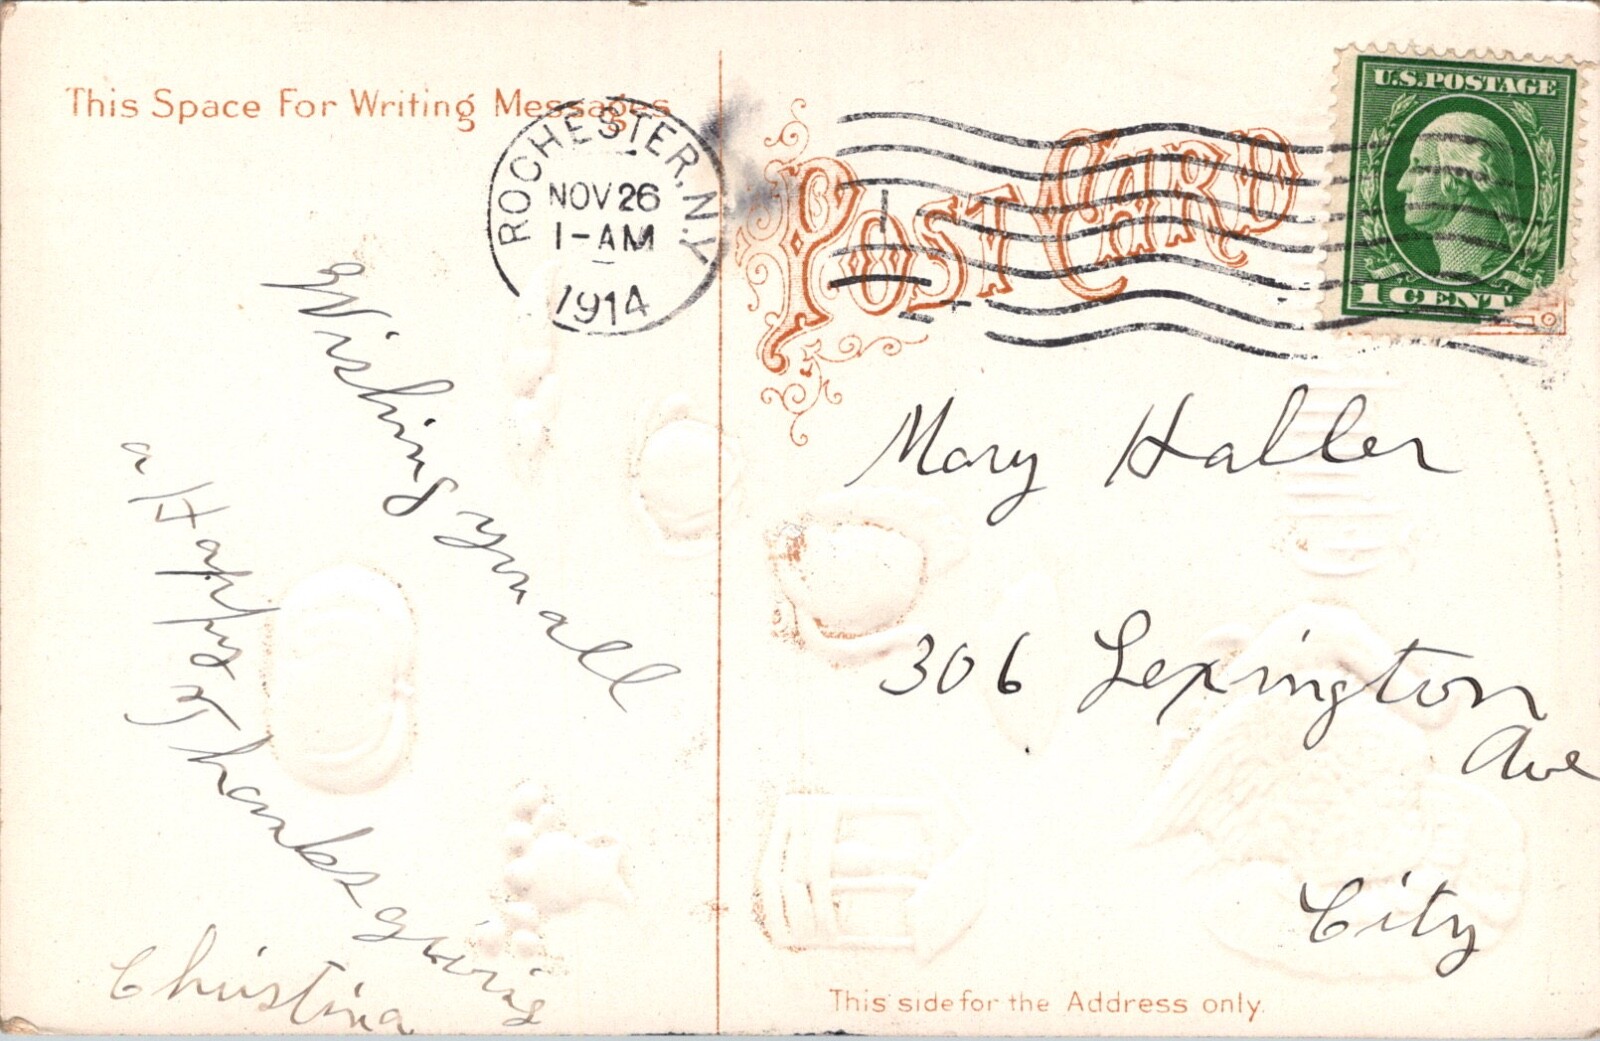 This Space For Writing Messages
ROCHESTER, N.Y.
NOV 26
1-AM
1914
POST CARD
U.S. POSTAGE
1 CENT
Wishing you all
a Happy
Thanksgiving
Christina
Mary Haller
306 Lexington
Ave
City
This side for the Address only.